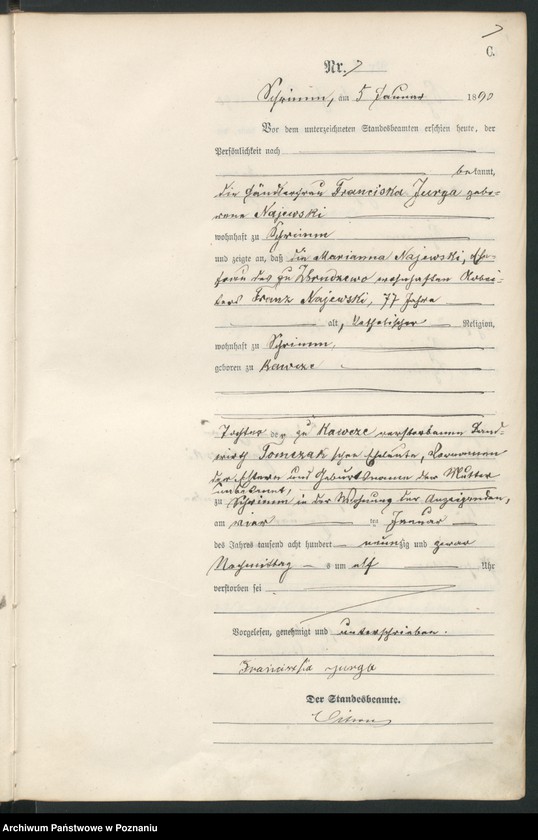 7
C.
Nr. 7
Schrimm, am 5 Januar 1890
Vor dem unterzeichneten Standesbeamten erschien heute, der
Persönlichkeit nach
bekannt,
die Händlerfrau Franciska Jurga gebo-
rene Najewski
wohnhaft zu Schrimm
und zeigte an, daß die Marianna Najewski, Ehe-
frau des zu wohnhaften Arbei-
ters Franz Najewski, 77 Jahre
alt, katholischer Religion,
wohnhaft zu Schrimm,
geboren zu Kawcze
Tochter der zu Kawcze verstorbenen Land-
wirth Tomczak'schen Eheleute, Vornamen
der Eltern und Geburtsnamen der Mutter
unbekannt,
zu Schrimm in der Wohnung der Anzeigenden,
am vier ten Januar
des Jahres tausend acht hundert neunzig und zwar
Nachmittag s um elf Uhr
verstorben sei
Vorgelesen, genehmigt und unterschrieben.
Franciszka Jurga
Der Standesbeamte.
Archiwum Państwowe w Poznaniu